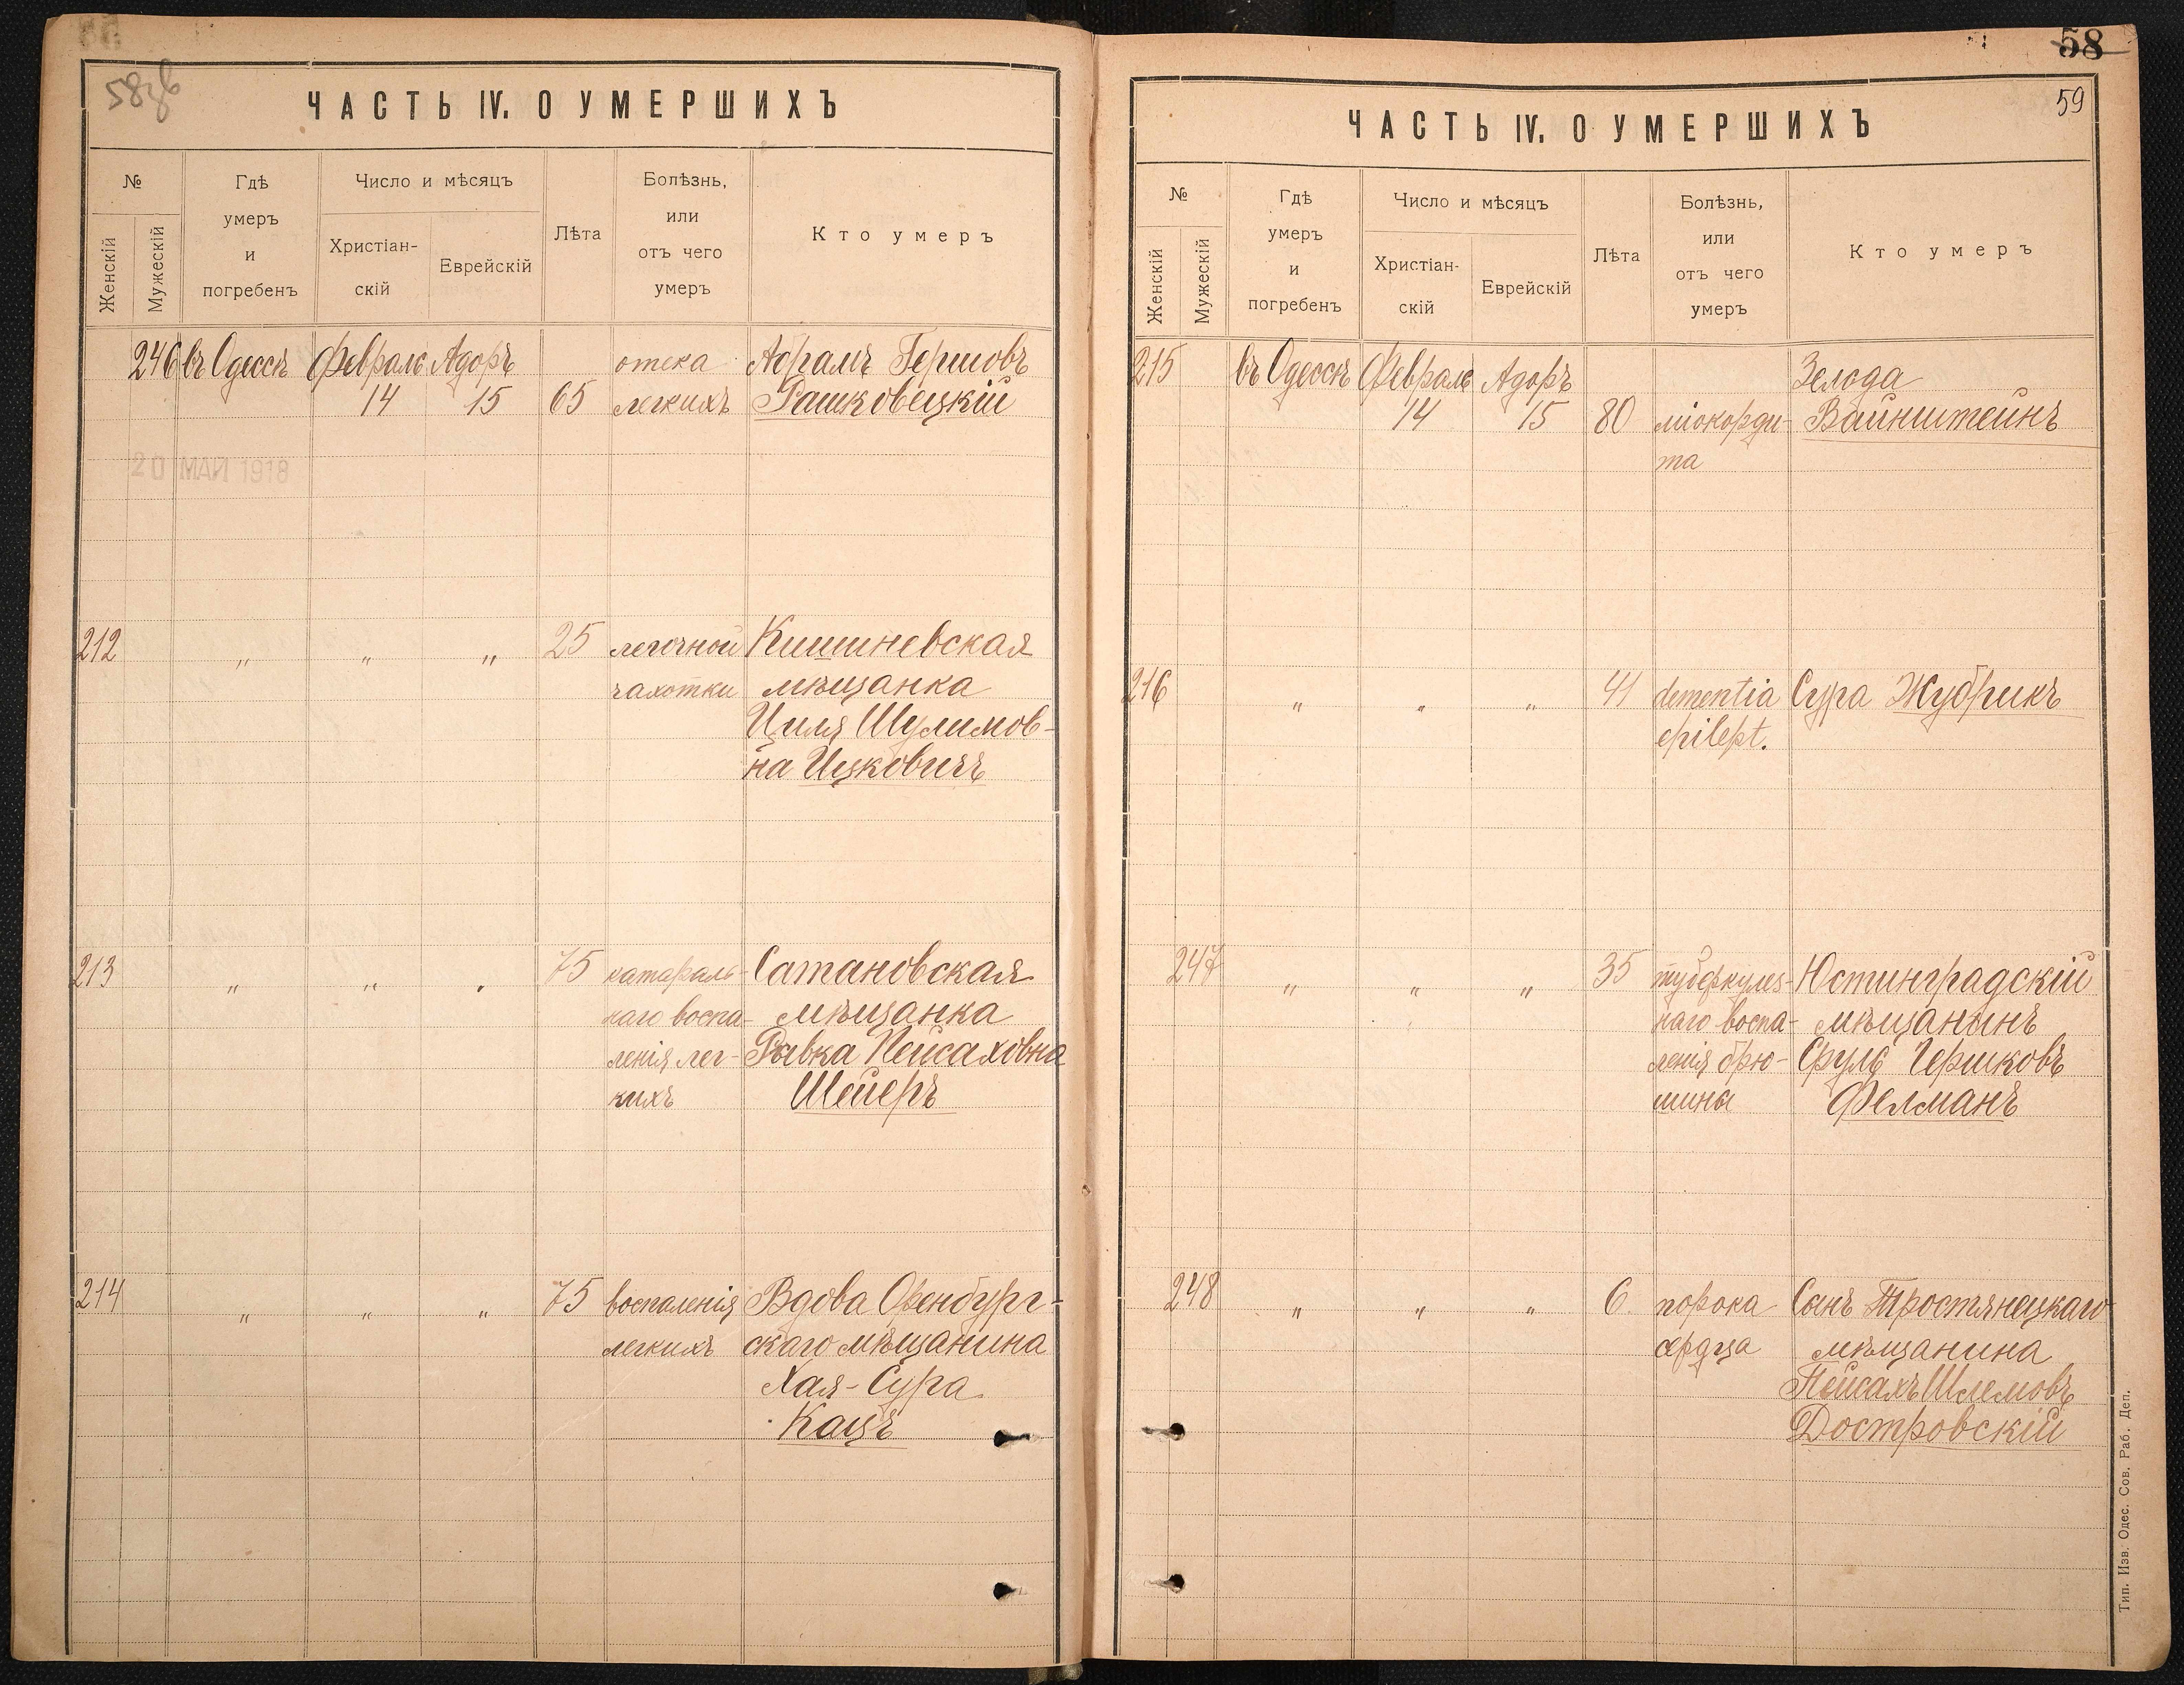 58 зв
ЧАСТЬ IV. О УМЕРШИХЪ
№
Женскій
Мужескій
Гдѣ
умеръ
и
погребенъ
Число и мѣсяцъ
Христіан-
скій
Еврейскій
Лѣта
Болѣзнь,
или
отъ чего
умеръ
Кто умеръ
246 въ Одессѣ Февраль Адоръ отека Абрамъ Гершовъ
14 15 65 легкихъ Рашковецкій
20 МАЙ 1918
212 „ „ „ 25 легочной Кишиневская
чахотки мѣщанка
Циля Шулимов-
на Ицковичъ
213 „ „ „ 75 катараль- Сатановская
наго воспа- мѣщанка
ленія лег- Рывка Пейсаховна
кихъ Шейеръ
214 „ „ „ 75 воспаленія Вдова Оренбург-
легкихъ скаго мѣщанина
Хая-Сура
Кацъ
58
59
ЧАСТЬ IV. О УМЕРШИХЪ
№
Женскій
Мужескій
Гдѣ
умеръ
и
погребенъ
Число и мѣсяцъ
Христіан-
скій
Еврейскій
Лѣта
Болѣзнь,
или
отъ чего
умеръ
Кто умеръ
215 въ Одессѣ Февраль Адоръ Зелода
14 15 80 міокорди- Вайнштейнъ
та
216 „ „ „ 41 dementia Сура Жубрикъ
epilept.
247 „ „ „ 35 туберкулез- Юстинградскій
наго воспа- мѣщанинъ
ленія брю- Сруль Гершковъ
шины Фелманъ
248 „ „ „ 6 порока Сынъ Тростянецкаго
сердца мѣщанина
Пейсахъ Шлемовъ
Достровскій
Тип. Изв. Одес. Сов. Раб. Деп.